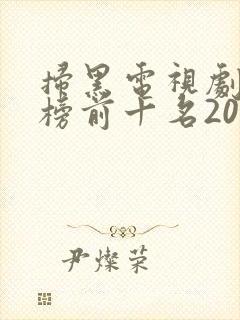 掃黑電視劇
榜前十名20
尹燦荣